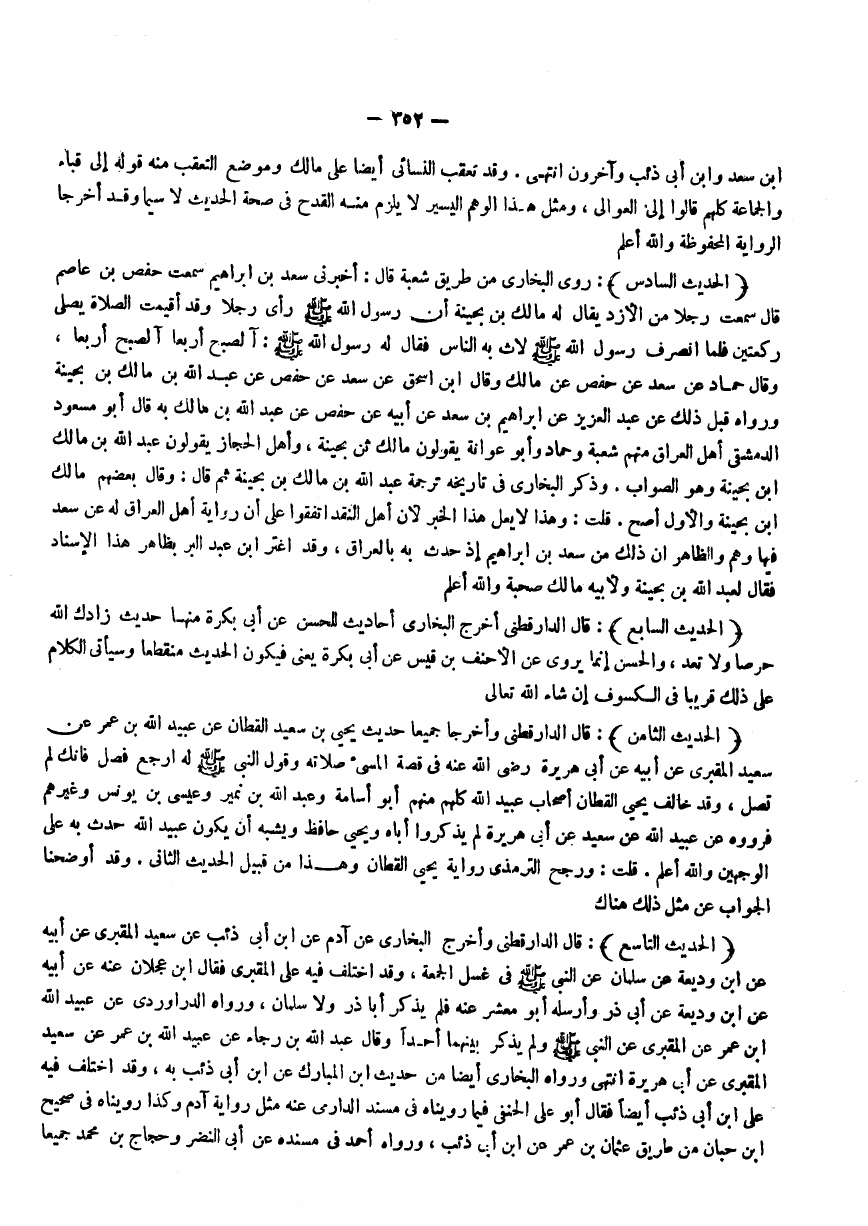 — ٣٥٢ —
ابن سعد وابن أبى ذئب وآخرون انتهى . وقد تعقب النسائى أيضا على مالك وموضع التعقب منه قوله إلى قباء
والجماعة كلهم قالوا إلى العوالى ، ومثل هـذا الوهم اليسير لا يلزم منـه القدح فى صحة الحديث لا سيما وقـد أخرجا
الرواية المحفوظة والله أعلم
﴿ الحديث السادس ﴾ : روى البخارى من طريق شعبة قال : أخبرنى سعد بن ابراهيم سمعت حفص بن عاصم
قال سمعت رجلا من الأزد يقال له مالك بن بحينة أن رسول الله ﷺ رأى رجلا وقد أقيمت الصلاة يصلى
ركعتين فلما انصرف رسول الله ﷺ لاث به الناس فقال له رسول الله ﷺ : آ لصبح أربعا آ لصبح أربعا ،
وقال حمـاد عن سعد عن حفص عن مالك وقال ابن اسحق عن سعد عن حفص عن عبـد الله بن مالك بن بحينة
ورواه قبل ذلك عن عبد العزيز عن ابراهيم بن سعد عن أبيه عن حفص عن عبد الله بن مالك به قال أبو مسعود
الدمشقى أهل العراق منهم شعبة وحماد وأبو عوانة يقولون مالك بن بحينة ، وأهل الحجاز يقولون عبد الله بن مالك
ابن بحينة وهو الصواب . وذكر البخارى فى تاريخه ترجمة عبد الله بن مالك بن بحينة ثم قال : وقال بعضهم مالك
ابن بحينة والأول أصح . قلت : وهذا لايعل هذا الخبر لأن أهل النقد اتفقوا على أن رواية أهل العراق له عن سعد
فيها وهم والظاهر ان ذلك من سعد بن ابراهيم إذ حدث به بالعراق ، وقد اغتر ابن عبد البر بظاهر هذا الإسناد
فقال لعبد الله بن بحينة ولأبيه مالك صحبة والله أعلم
﴿ الحديث السابع ﴾ : قال الدارقطنى أخرج البخارى أحاديث للحسن عن أبى بكرة منهـا حديث زادك الله
حرصا ولا تعد ، والحسن إنما يروى عن الأحنف بن قيس عن أبى بكرة يعنى فيكون الحديث منقطعا وسيأتى الكلام
على ذلك قريبا فى الكسوف إن شاء الله تعالى
﴿ الحديث الثامن ﴾ : قال الدارقطنى وأخرجا جميعا حديث يحيى بن سعيد القطان عن عبيد الله بن عمر عن
سعيد المقبرى عن أبيه عن أبى هريرة رضى الله عنه فى قصة المسىء صلاته وقول النبى ﷺ له ارجع فصل فانك لم
تصل ، وقد خالف يحيى القطان أصحاب عبيد الله كلهم منهم أبو أسامة وعبد الله بن نمير وعيسى بن يونس وغيرهم
فرووه عن عبيد الله عن سعيد عن أبى هريرة لم يذكروا أباه ويحيى حافظ ويشبه أن يكون عبيد الله حدث به على
الوجهين والله أعلم . قلت : ورجح الترمذى رواية يحيى القطان وهــذا من قبيل الحديث الثانى . وقد أوضحنا
الجواب عن مثل ذلك هناك
﴿ الحديث التاسع ﴾ : قال الدارقطنى وأخرج البخارى عن آدم عن ابن أبى ذئب عن سعيد المقبرى عن أبيه
عن ابن وديعة عن سلمان عن النبى ﷺ فى غسل الجمعة ، وقد اختلف فيه على المقبرى فقال ابن عجلان عنه عن أبيه
عن ابن وديعة عن أبى ذر وأرسله أبو معشر عنه فلم يذكر أبا ذر ولا سلمان ، ورواه الدراوردى عن عبيد الله
ابن عمر عن المقبرى عن النبى ﷺ ولم يذكر بينهما أحـداً وقال عبد الله بن رجاء عن عبيد الله بن عمر عن سعيد
المقبرى عن أبى هريرة انتهى ورواه البخارى أيضا من حديث ابن المبارك عن ابن أبى ذئب به ، وقد اختلف فيه
على ابن أبى ذئب أيضاً فقال أبو على الحنفى فيما رويناه فى مسند الدارى عنه مثل رواية آدم وكذا رويناه فى صحيح
ابن حبان من طريق عثمان بن عمر عن ابن أبى ذئب ، ورواه أحمد فى مسنده عن أبى النضر وحجاج بن محمد جميعا